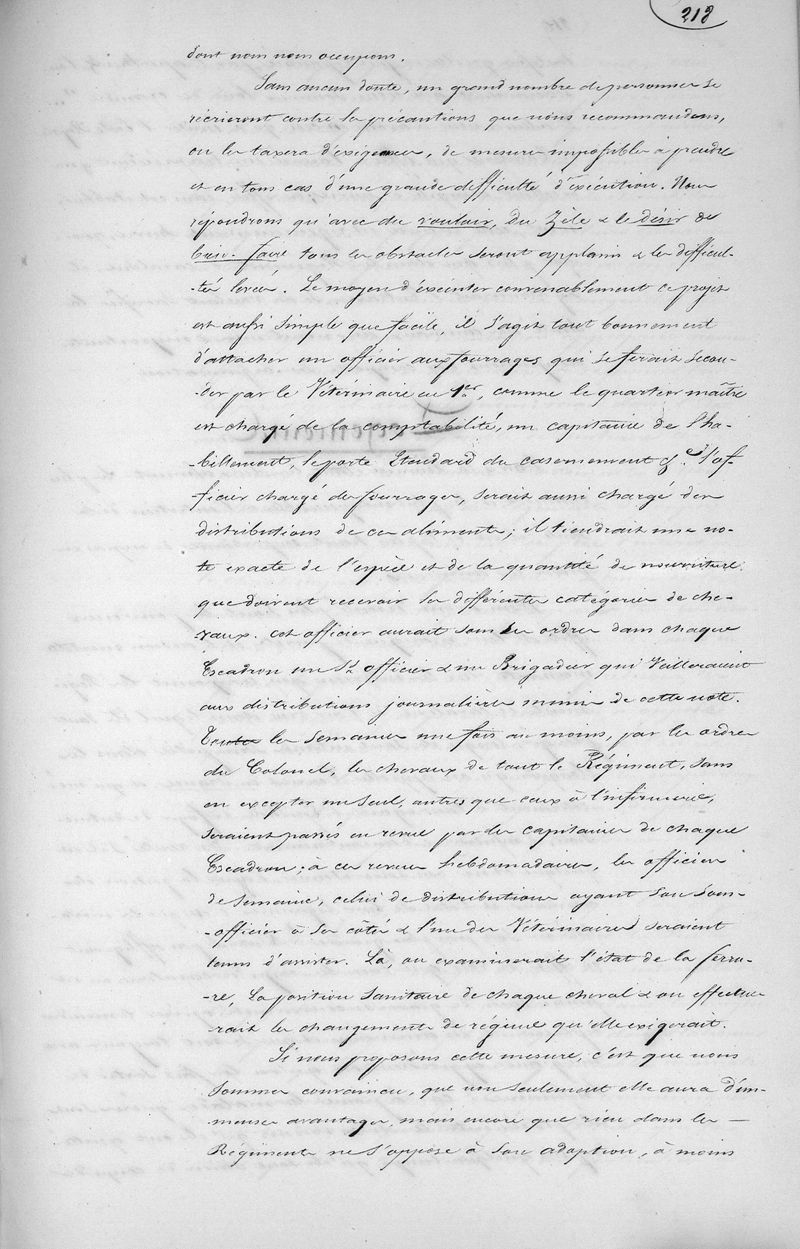 218
dont nous nous occupons.
Sans aucun doute, un grand nombre de personnes se
récrieront contre les précautions que nous recommandons,
on les taxera d'exigences, de mesures impossibles à prendre
et en tous cas d'une grande difficulté d'exécution. Nous
répondrons qu'avec du vouloir, du Zèle & le désir de
bien-faire tous les obstacles seront applanis & les difficul-
-tés levées. Le moyen d'exécuter convenablement ce projet
est aussi simple que facile, il s'agit tout bonnement
d'attacher un officier aux fourrages qui se ferait secon-
-der par le Vétérinaire en 1er, comme le quartier maître
est chargé de la comptabilité, un capitaine de l'ha-
-billement, le porte Etendard du casernement &c. l'of-
-ficier chargé des fourrages, serait aussi chargé des
distributions de ces aliments; il tiendrait une no-
te exacte de l'espèce et de la quantité de nourriture
que doivent recevoir les différentes catégories de che-
vaux. cet officier aurait sous ses ordres dans chaque
Escadron un St officier & un Brigadier qui Veilleraient
aux distributions journalières munis de cette note.
Toutes les semaines une fois au moins, par les ordres
du Colonel, les chevaux de tout le Régiment, sans
en excepter un seul, autres que ceux à l'infirmerie,
seraient passés en revue par les capitaines de chaque
Escadron; à ces revues hebdomadaires, les officiers
de semaine, celui de distributions ayant son sous-
-officier à ses côtés & l'un des Vétérinaires seraient
tenus d'assister. Là, on examinerait l'état de la ferru-
-re, la position sanitaire de chaque cheval & on effectue-
-rait les changements de régime qu'elle exigerait.
Si nous proposons cette mesure, c'est que nous
sommes convaincu, que non seulement elle aura d'im-
-menses avantages, mais encore que rien dans les
Régiments ne s'oppose à son adoption, à moins